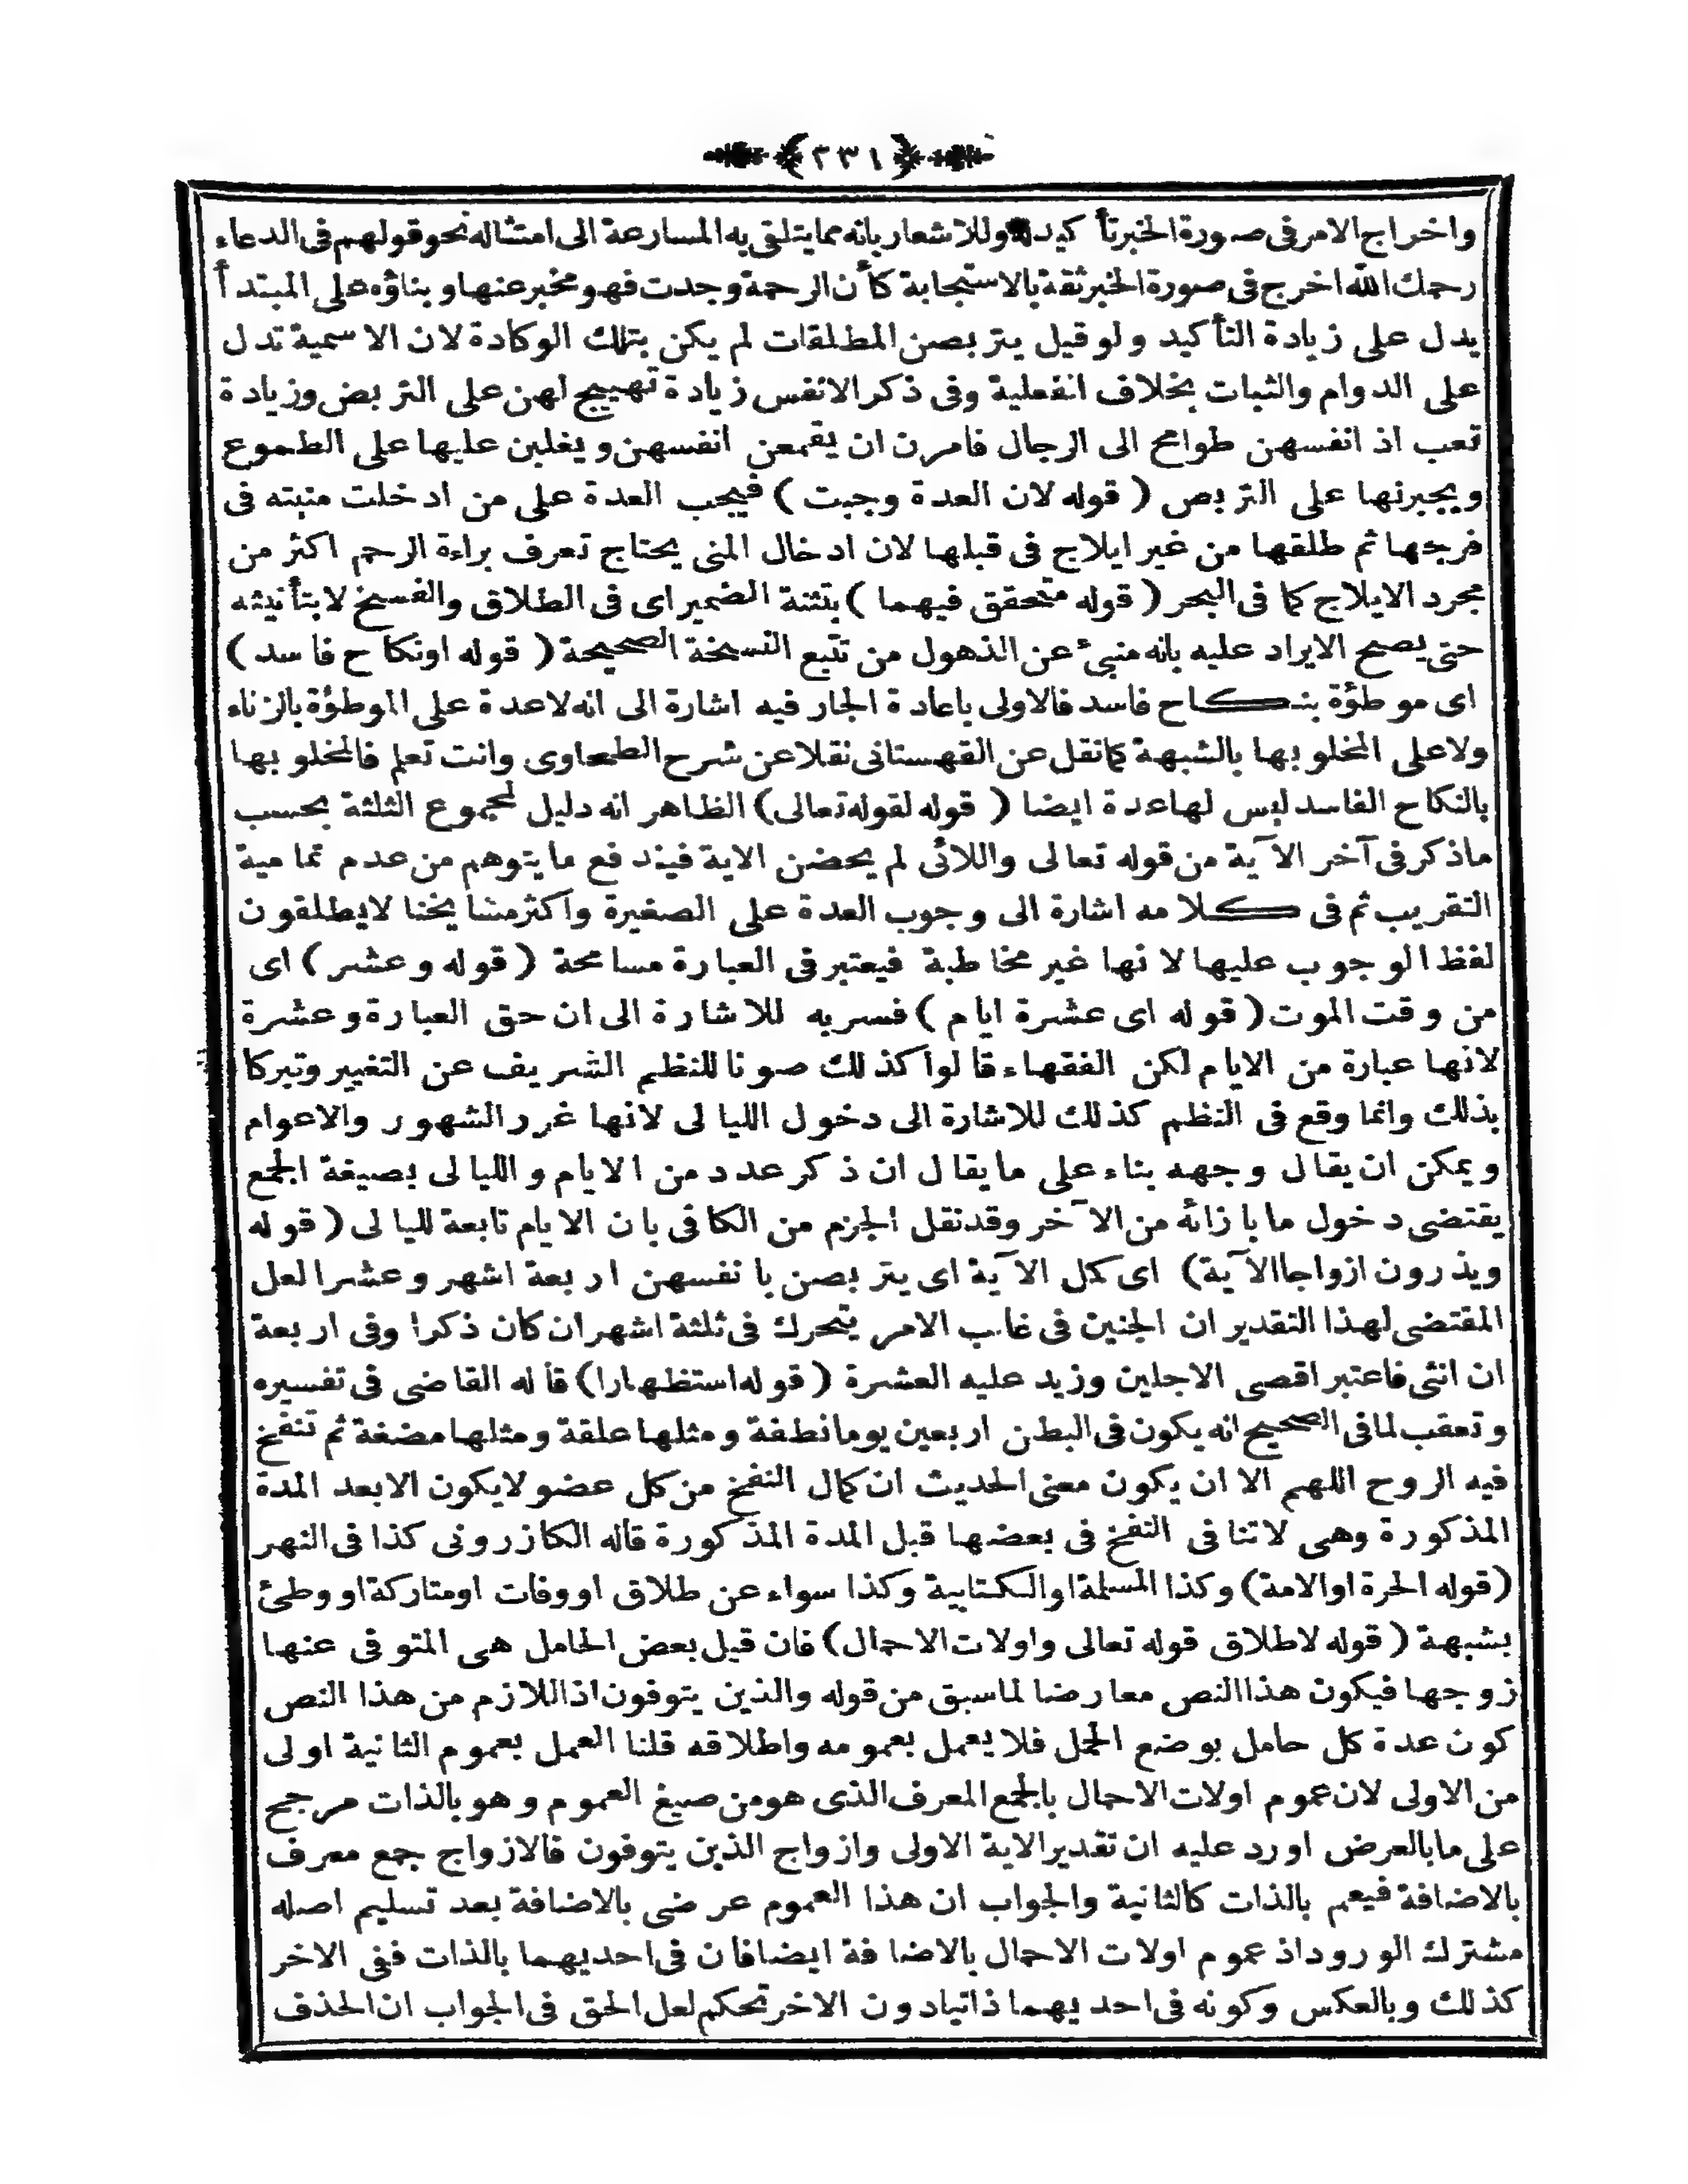 (٢٣١)
واخراج الامر فى صورة الخبر تأكيد له وللاشعار بانه مما يتلقى به المسارعة الى امتثاله نحو قولهم فى الدعاء
رحمك الله اخرج فى صورة الخبر ثقة بالاستجابة كأن الرحمة وجدت فهو مخبر عنها وبناؤه على المبتدأ
يدل على زيادة التأكيد ولو قيل يتربصن المطلقات لم يكن بتلك الوكادة لان الاسمية تدل
على الدوام والثبات بخلاف انفعلية وفى ذكر الانفس زيادة تهييج لهن على التربض وزيادة
تعب اذ انفسهن طوامح الى الرجال فامرن ان يقمعن انفسهن ويغلبن عليها على الطموع
ويجبرنها على التربص ( قوله لان العدة وجبت ) فيجب العدة على من ادخلت منبته فى
فرجها ثم طلقها من غير ايلاج فى قبلها لان ادخال المنى يحتاج تعرف براءة الرحم اكثر من
مجرد الايلاج كما فى البحر ( قوله متحقق فيهما ) بتثنة الضمير اى فى الطلاق والفسخ لا بتأنيثه
حتى يصح الايراد عليه بانه منبئ عن الذهول من تتبع النسخة الصحيحة ( قوله اونكاح فاسد )
اى موطؤة بنكاح فاسد فالاولى باعادة الجار فيه اشارة الى انه لاعدة على الموطؤة بالزناء
ولاعلى المخلو بها بالشبهة كمانقل عن القهستانى نقلا عن شرح الطحاوى وانت تعلم فالمخلو بها
بالنكاح الفاسد ليس لها عدة ايضا ( قوله لقوله تعالى) الظاهر انه دليل لمجموع الثلثة بحسب
ماذكر فى آخر الآية من قوله تعالى واللائى لم يحضن الاية فيندفع ما يتوهم من عدم تمامية
التقريب ثم فى كلامه اشارة الى وجوب العدة على الصغيرة واكثر مشايخنا لايطلقون
لفظ الوجوب عليها لانها غير مخاطبة فيعتبر فى العبارة مسامحة ( قوله وعشر ) اى
من وقت الموت ( قوله اى عشرة ايام ) فسر به للاشارة الى ان حق العبارة وعشرة
لانها عبارة من الايام لكن الفقهاء قالوا كذلك صونا للنظم الشريف عن التغيير وتبركا
بذلك وانما وقع فى النظم كذلك للاشارة الى دخول الليالى لانها غرر الشهور والاعوام
ويمكن ان يقال وجهه بناء على ما يقال ان ذكر عدد من الايام والليالى بصيغة الجمع
يقتضى دخول ما بازائه من الآخر وقدنقل الجزم من الكافى بان الايام تابعة لليالى ( قوله
ويذرون ازواجا الآية) اى كمل الآية اى يتربصن بانفسهن اربعة اشهر وعشرا لعل
المقتضى لهذا التقدير ان الجنين فى غالب الامر يتحرك فى ثلثة اشهر ان كان ذكرا وفى اربعة
ان انثى فاعتبر اقصى الاجلين وزيد عليه العشرة ( قوله استظهارا) قاله القاضى فى تفسيره
وتعقب لما فى الصحيح انه يكون فى البطن اربعين يوما نطفة ومثلها علقة ومثلها مضغة ثم تنفخ
فيه الروح اللهم الا ان يكون معنى الحديث ان كمال النفخ من كل عضو لايكون الابعد المدة
المذكورة وهى لاتنافى النفخ فى بعضها قبل المدة المذكورة قاله الكازرونى كذا فى النهر
(قوله الحرة اوالامة) وكذا المسلمة اوالكتابية وكذا سواء عن طلاق اووفات اومتاركة او وطئ
بشبهة ( قوله لاطلاق قوله تعالى واولات الاحمال) فان قيل بعض الحامل هى المتوفى عنها
زوجها فيكون هذا النص معارضا لماسبق من قوله والذين يتوفون اذ اللازم من هذا النص
كون عدة كل حامل بوضع الحمل فلا يعمل بعمومه واطلاقه قلنا العمل بعموم الثانية اولى
من الاولى لان عموم اولات الاحمال بالجمع المعرف الذى هو من صيغ العموم وهو بالذات مرجح
على مابالعرض اورد عليه ان تقدير الاية الاولى وازواج الذين يتوفون فالازواج جمع معرف
بالاضافة فيعم بالذات كالثانية والجواب ان هذا العموم عرضى بالاضافة بعد تسليم اصله
مشترك الورود اذ عموم اولات الاحمال بالاضافة ايضا فان فى احديهما بالذات ففى الاخر
كذلك وبالعكس وكونه فى احديهما ذاتيا دون الاخر تحكم لعل الحق فى الجواب ان الحذف